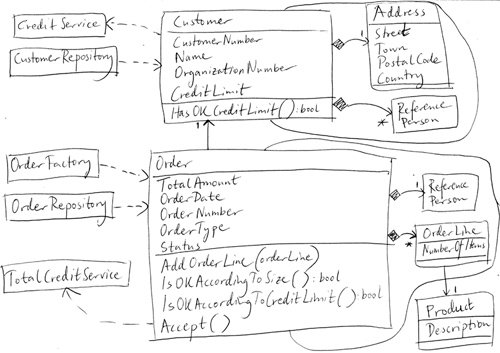 Credit Service
Customer Repository
Customer
CustomerNumber
Name
OrganizationNumber
CreditLimit
HasOKCreditLimit():bool
Address
Street
Town
PostalCode
Country
1
Reference
Person
*
1
OrderFactory
OrderRepository
TotalCreditService
Order
TotalAmount
OrderDate
OrderNumber
OrderType
Status
AddOrderLine(orderLine)
IsOKAccordingToSize():bool
IsOKAccordingToCreditLimit():bool
Accept()
1
Reference
Person
*
OrderLine
NumberOfItems
1
Product
Description